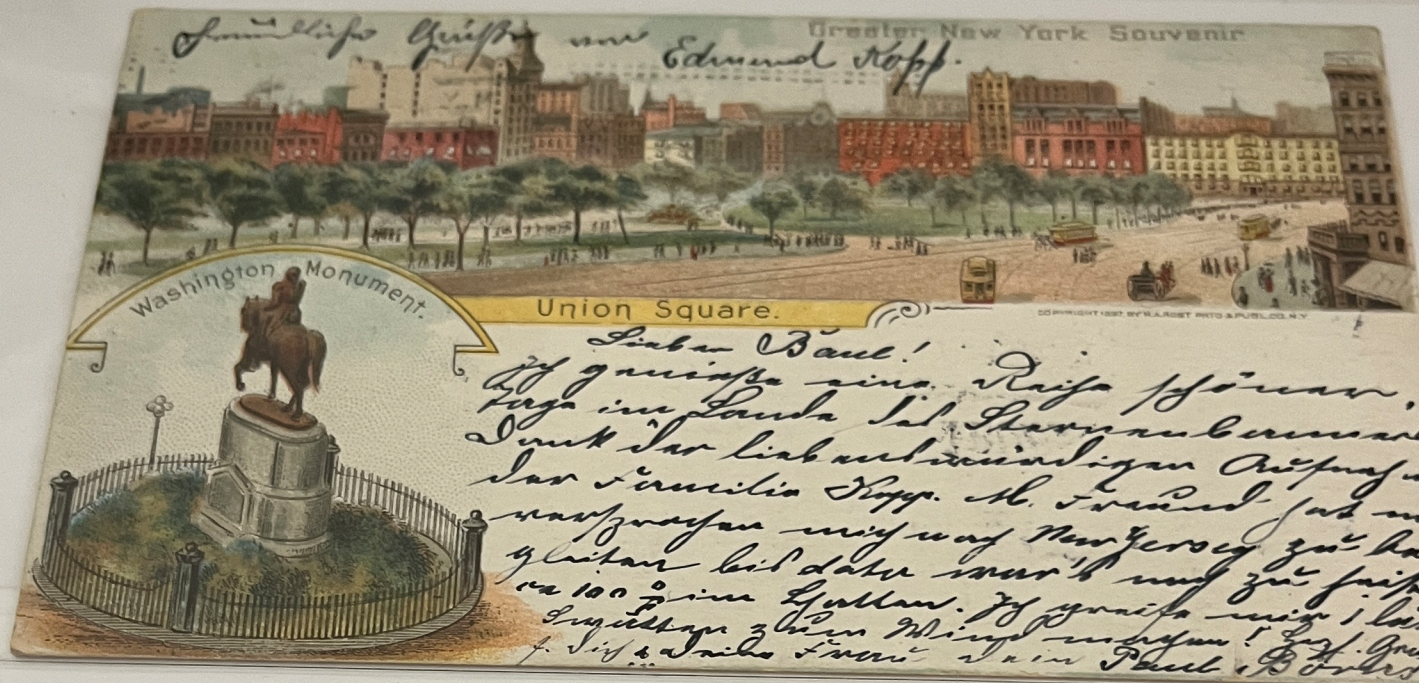 Greater New York Souvenir
Freundliche Grüße von Edmund Kopp.
Washington Monument.
Union Square.
COPYRIGHT 1897, BY H.A.ROST PRTG & PUBL.CO. N.Y.
Lieber Paul!
Ich genieße eine Reihe schöner
Tage im Lande des Sternenbanner
Dank der liebenswürdigen Aufnah
der Familie Kopp. M. Freund hat
versprochen mich nach New Jersey zu be
gleiten bis dato war's noch zu heiß
ca 100 ° im Schatten. Ich
zum Wind machen! Herzl.
f. Dich & Deine Frau dein Paul